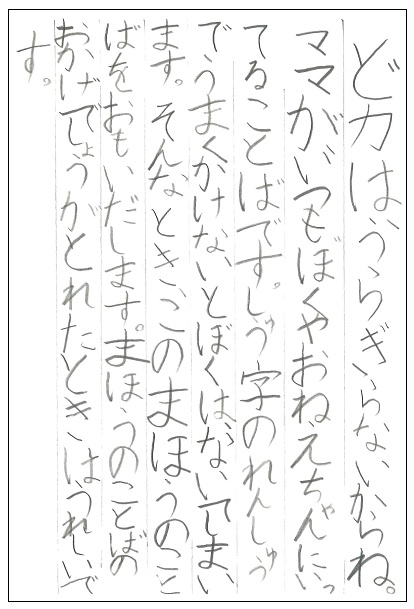 ど力は、うらぎらないからね。
ママがいつもぼくやおねえちゃんにいっ
てることばです。しゅう字のれんしゅう
でうまくかけないとぼくは、ないてしまい
ます。そんなときこのまほうのこと
ばをおもいだします。まほうのことばの
おかげでしょうがとれたときは、うれしいで
す。